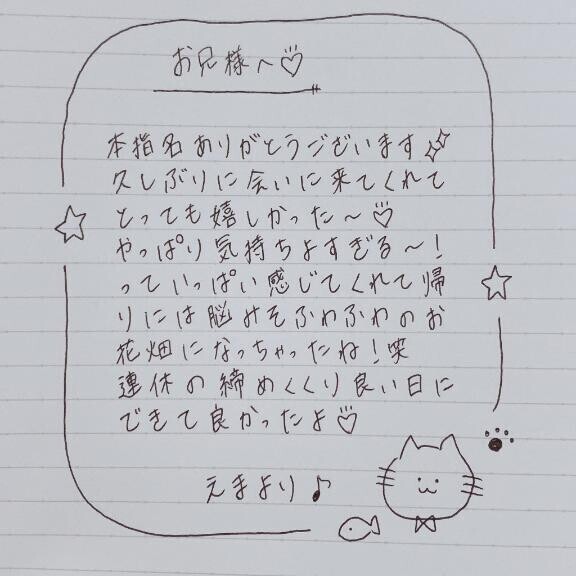 お兄様へ♡
本指名ありがとうございます✨
久しぶりに会いに来てくれて
とっても嬉しかった〜♡
やっぱり気持ちよすぎる〜！
っていっぱい感じてくれて帰
りには脳みそふわふわのお
花畑になっちゃったね！笑
連休の締めくくり良い日に
できて良かったよ♡
えまより♪